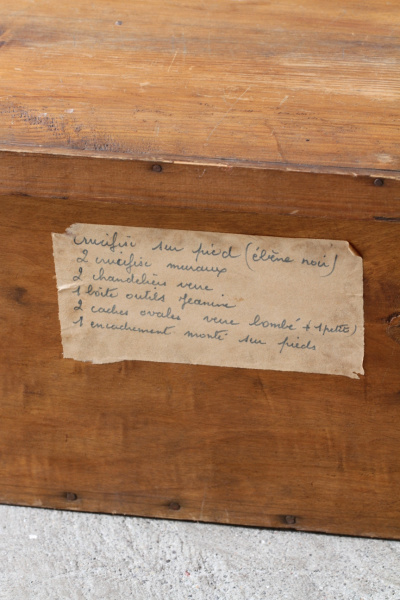 crucifix sur pied (ébène noir)
2 crucifix muraux
2 chandeliers verre
1 boîte outils Jeanine
2 cadres ovales verre bombé
1 encadrement monté sur pieds